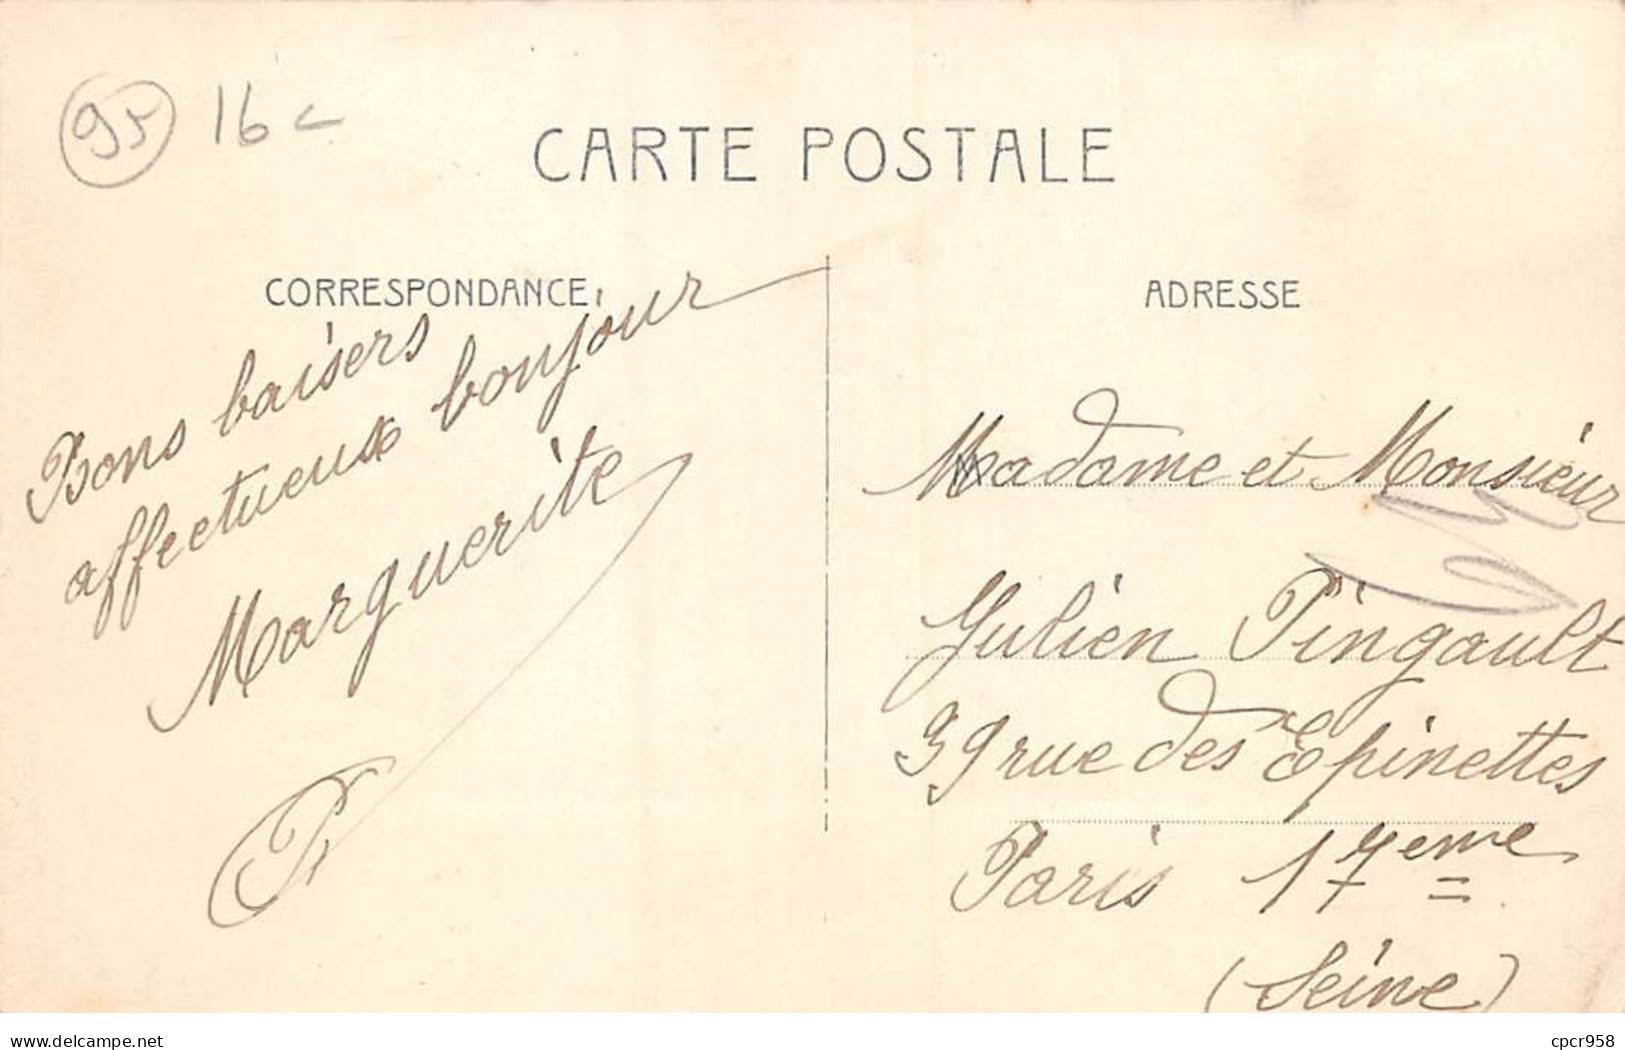 95 16
CARTE POSTALE
CORRESPONDANCE
ADRESSE
Bons baisers
affectueux bonjour
Marguerite
P
Madame et Monsieur
Julien Pingault
39 rue des Epinettes
Paris 17eme
(Seine)
www.delcampe.net
cpcr958